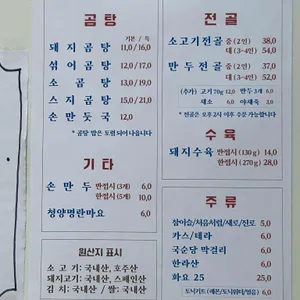 곰탕
기본 / 특
돼지곰탕 11,0/16,0
섞어곰탕 12,0/17,0
소곰탕 13,0/19,0
스지곰탕 15,0/21,0
손만둣국 12,0
* 곰탕 밥은 토렴 되어 나옵니다
기타
손만두 반접시 (3개) 6,0
한접시 (5개) 10,0
청양명란마요 6,0
원산지 표시
소고기: 국내산, 호주산
돼지고기: 국내산, 스페인산
김치: 국내산 / 쌀: 국내산
전골
소고기전골 중 (2인) 38,0
대 (3-4인) 54,0
만두전골 중 (2인) 37,0
대 (3-4인) 52,0
(추가) 고기 70g 12,0 만두 3개 6,0
채소 6,0 야채죽 3,0
* 전골은 오후 2시 이후 주문 가능합니다
수육
돼지수육 반접시 (130g) 14,0
한접시 (270g) 28,0
주류
참이슬/처음처럼/새로/진로 5,0
카스/테라 5,0
국순당 막걸리 5,0
한라산 6,0
화요 25 25,0
토닉키트 (레몬/토닉워터/얼음) 6,0